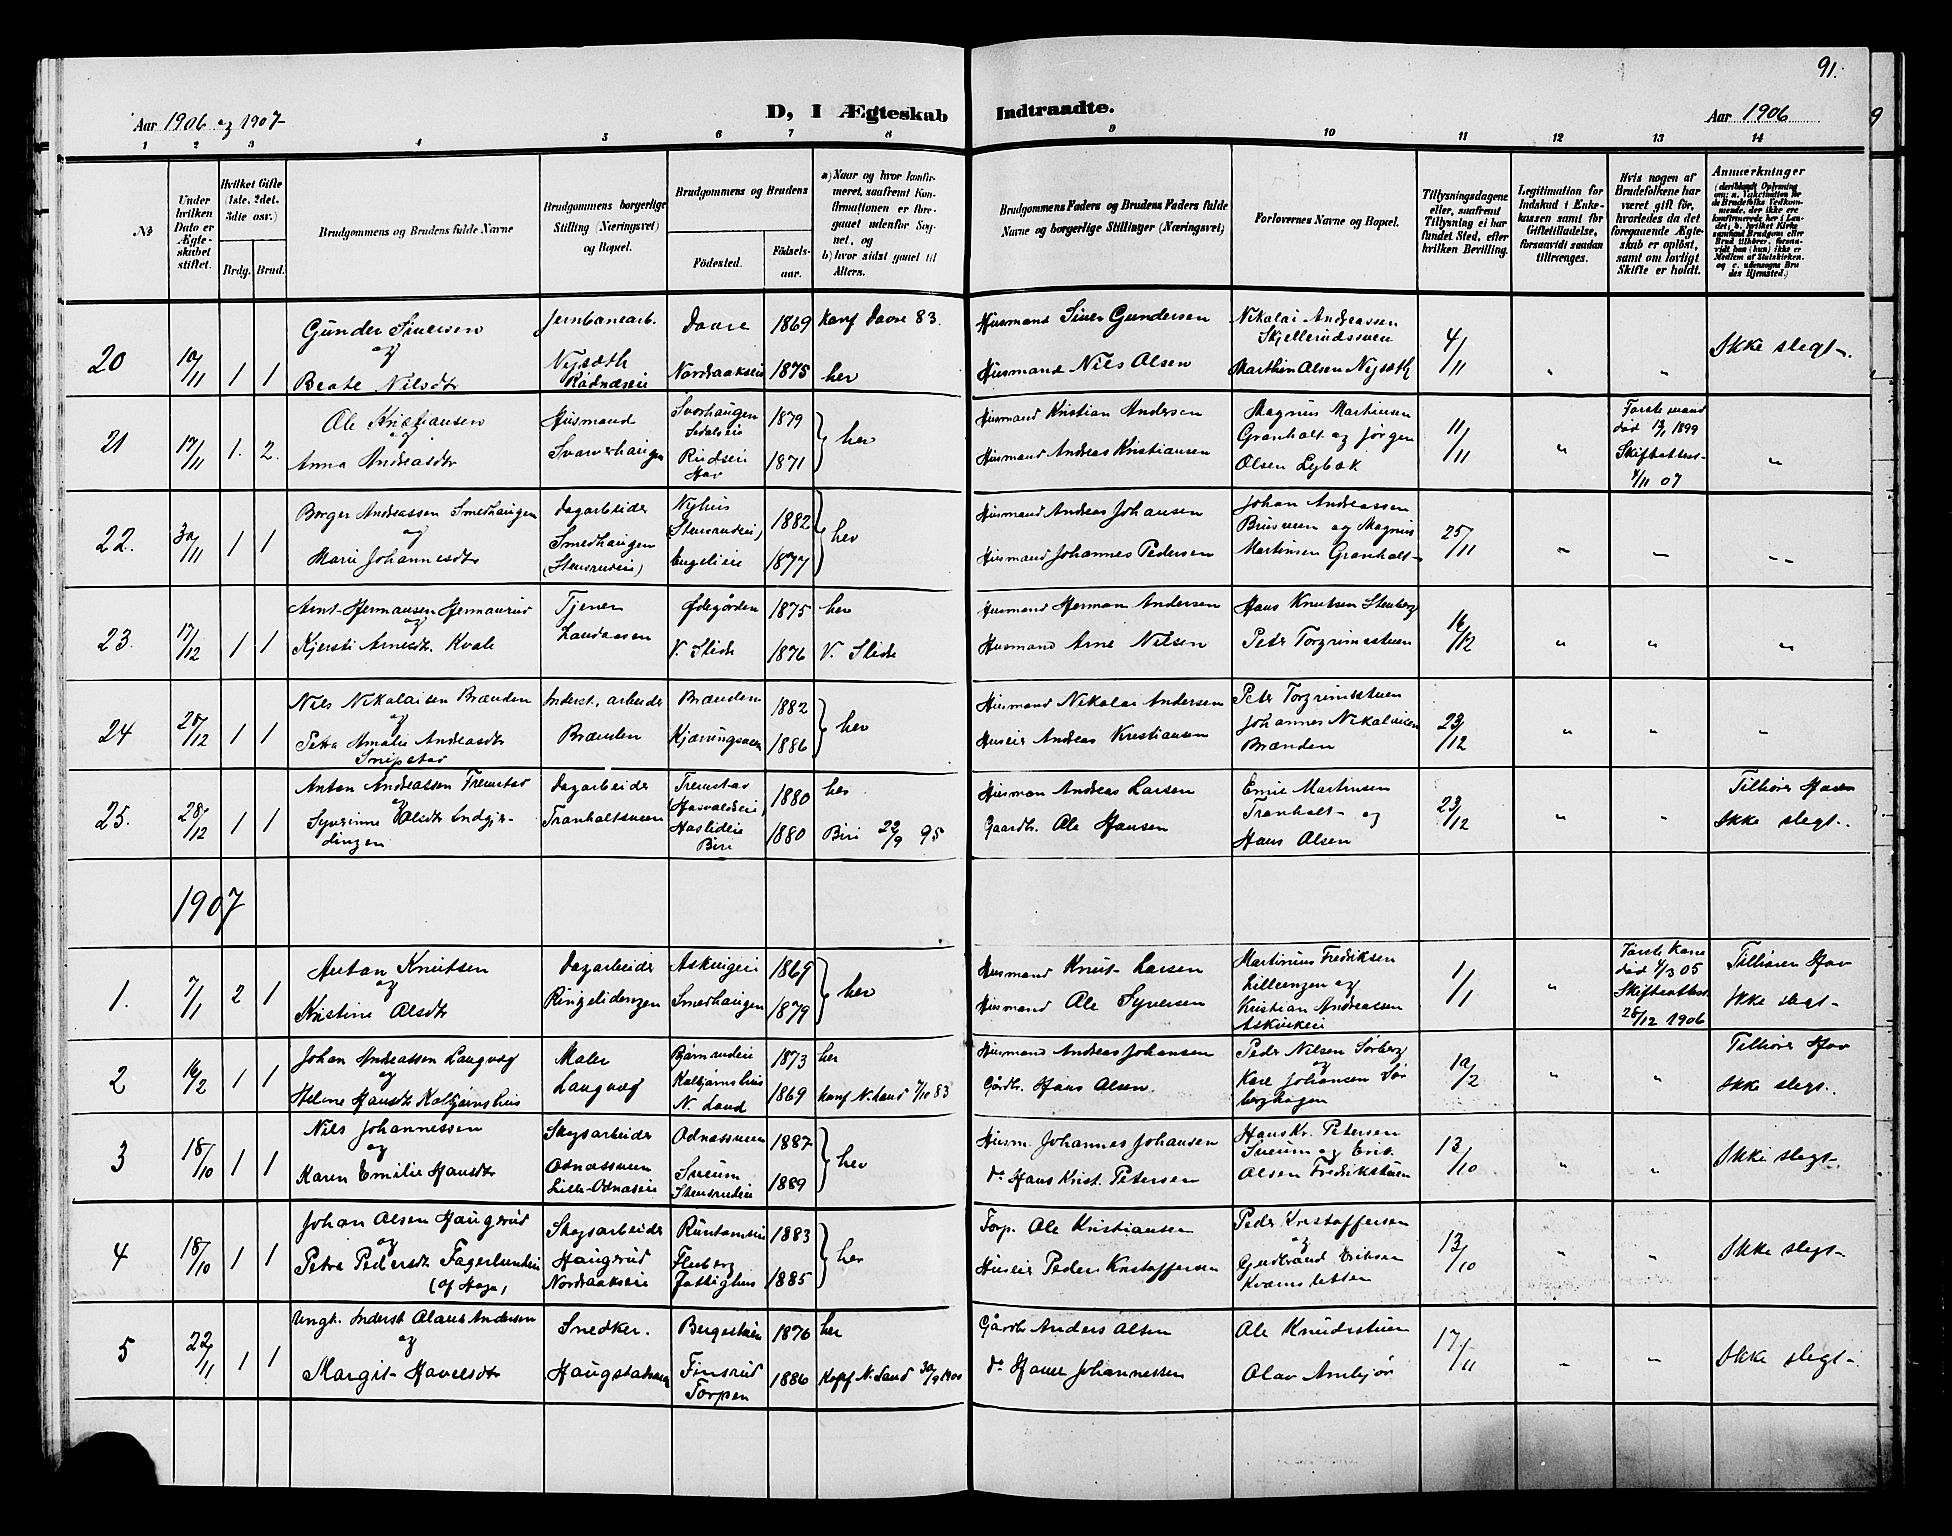 91.
Aar 1906 og 1907
D, I Ægteskab Indtraadte.
Aar 1906
1 2 3 4 5 6 7 8 9 10 11 12 13 14
No
Under hvilken Dato er Ægteskabet stiftet.
Hvilket Gifte (1ste, 2det, 3die osv.)
Brdg. Brud.
Brudgommens og Brudens fulde Navne
Brudgommens borgerlige Stilling (Næringsvei) og Bopæl.
Brudgommens og Brudens
Fødested.
Fødselsaar.
a) Naar og hvor konfirmeret, saafremt Konfirmationen er foregaaet udenfor Sognet, og
b) hvor sidst gaaet til Alters.
Brudgommens Faders og Brudens Faders fulde Navne og borgerlige Stillinger (Næringsvei)
Forlovernes Navne og Bopæl.
Tillysningsdagene eller, saafremt Tillysning ei har fundet Sted, efter hvilken Bevilling.
Legitimation for Indskud i Enkekassen samt for Giftetilladelse, forsaavidt saadan tiltrænges.
Hvis nogen af Brudefolkene har været gift før, hvorledes da det foregaaende Ægteskab er opløst, samt om lovligt Skifte er holdt.
Anmærkninger
20 10/11 1 1
Gunder Siversen
og
Beate Nilsdtr
Jernbanearb.
Nysæth
Rødnæseie
Dovre 1869 konf Dovre 83.
Nordraakseie 1875 her
Husmand Siver Gundersen
Husmand Nils Olsen
Nikolai Andreassen
Skjellerudssveen
Marthin Olsen Nysæth
4/11 " "
Ikke slegt
21 17/11 1. 2.
Ole Kristiansen
og
Anna Andreasdtr
Husmand
Svarverhaugen
1879
Rudseie
Hov 1871 her
Husmand Kristian Andersen
Husmand Andreas Kristiansen
Magnus Martinsen
Granholt og Jørgen
Olsen Lybæk
11/11 "
Første mand
død 13/1 1899
Skifteattest
4/11 07
"
22. 30/11 1 1
Borger Andreassen Smedhaugen
og
Marie Johannesdtr
Dagarbeider
Smedhaugen
(Stensrudeie)
Nyhus
(Stensrudeie) 1882
Engelieie 1877 her
Husmand Andreas Johansen
Husmand Johannes Pedersen
Johan Andreassen
Brusveen og Magnus
Martinsen Granholt
25/11 " " "
23. 17/12 1 1
Arnt Hermansen Hermanrud
og
Kjersti Arnesdtr. Kvale
Tjener
Landaasen
Ødegården 1875 her
V. Slidre 1876 V. Slidre
Husmand Herman Andersen
Husmand Arne Nilsen
Hans Knutsen Stenberg
Peter Torgrimsstuen
16/12 " " "
24 28/12 1 1
Nils Nikolaisen Brænden
og
Petra Amalie Andreasdtr
Snipstad
Inderst, arbeider
Brænden
Brænden 1882
Kjæringsveen 1886 her
Husmand Nikolai Andersen
Huseier Andreas Kristiansen
Peter Torgrimsstuen
Johannes Nikolaisen
Brænden
23/12 " " "
25. 28/12 1 1
Anton Andreassen Fremstad
og
Syverine Olsdtr
Dagarbeider
Tranholtsveen
(Hasvaldseie) 1880 her
Haslideie
Biri 1880 Biri 22/9 95
Husman Andreas Larsen
Gaardbr. Ole Hansen
Emil Martinsen
Tranholt og
Hans Olsen
23/12 " "
Tilhører Hov
Ikke slegt.
1907
1. 7/1 2 1
Anton Knutsen
og
Kristine Olsdtr
Dagarbeider
Ringelidengen
Askvigeie 1869
Smedhaugen 1879 her
Husmand Knut Larsen
Husmand Ole Syversen
Martinius Fredriksen
Lilleengen og
Kristian Andreassen
Askvikeie
1/1 "
Første kone
død 4/3 05
Skifteattest
28/12 1906
Tilhører Hov
Ikke slegt
2 16/2 1 1
Johan Andreassen Langvæg
og
Helene Hansdtr Kolbjørnshus
Maler
Langvæg
Bjørnrudeie 1873 her
Kolbjørnshus
N. Land 1869 konf N. Land 7/10 83
Husmand Andreas Johansen
Gårdbr. Hans Olsen.
Peder Nilsen Sørberg
og
Karl Johansen Sør
berghagen
10/2 " "
Tilhører Hov
Ikke slegt.
3 18/10 1 1
Nils Johannessen
og
Karen Emilie Hansdtr
Skogsarbeider
Odnæssveen
Lille-Odnæseie
Odnæssveen 1887
Sveum
Stensrudeie 1889 her
Husm. Johannes Johansen
do Hans Krist. Petersen
Hans Kr. Petersen
Sveum og Erik
Olsen Fredrikstuen
13/10 " "
Ikke slegt.
4 18/10 1 1
Johan Olsen Haugerud
og
Petra Pedersdtr Fagerlundeie
(af Haga)
Skogsarbeider
Haugerud
Nordraakseie
1883
Fluberg
Fattighus 1885 her
Torp. Ole Kristiansen
Huseier Peder Kristoffersen
Peder Kristoffersen
og
Gudbrand Eriksen
Kvernsletten
13/10 " "
Ikke slegt.
5 22/11 1 1
Ungk. Inderst Olaus Andersen
og
Margit Havelsdtr
Snedker.
Bergestuen 1876 her
Finsrud
Torpen 1886 Konf N. Land 30/9 1900
Gårdbr Anders Olsen
do Havel Johannessen
Ole Knudsstuen
17/11 " "
Ikke slegt